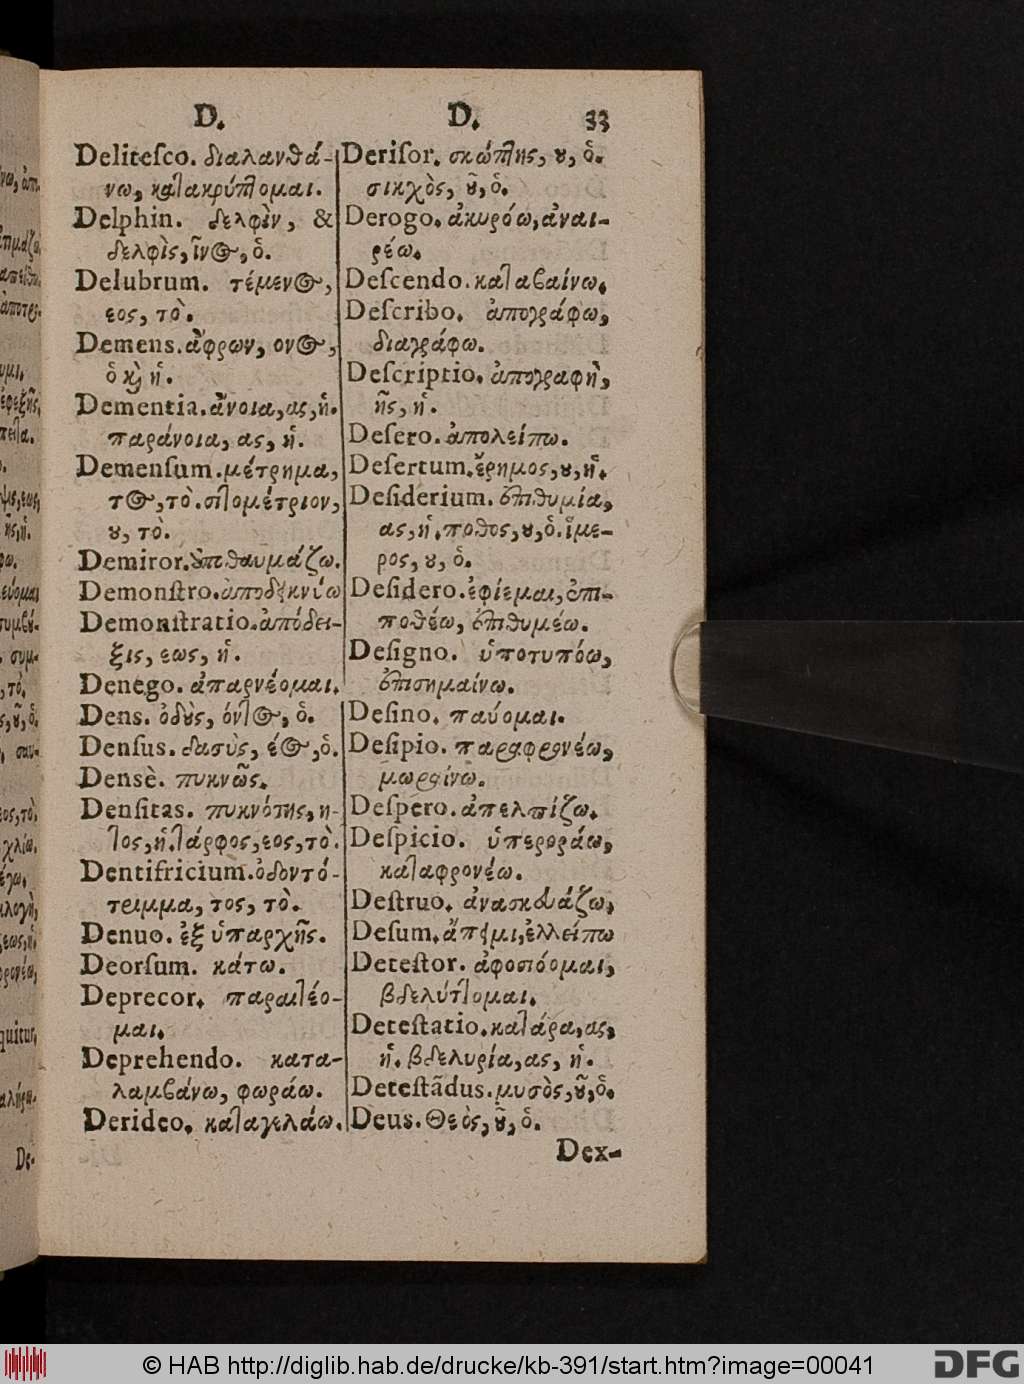 D.
Deliteſco. διαλανθά-
νω, κατακρύπτομαι.
Delphin. δελφὶν, &
δελφὶς, ῖνος, ὁ.
Delubrum. τέμενος,
εος, τὸ.
Demens. ἄφρων, ονος,
ὁ καὶ ἡ.
Dementia. ἄνοια, ας, ἡ.
παράνοια, ας, ἡ.
Demenſum. μέτρημα,
τος, τὸ. σιτομέτριον,
ου, τὸ.
Demiror. ἐπιθαυμάζω.
Demonſtro. ἀποδεικνύω
Demonſtratio. ἀπόδει-
ξις, εως, ἡ.
Denego. ἀπαρνέομαι.
Dens. ὀδὺς, όντος, ὁ.
Denſus. δασὺς, έος, ὁ.
Densè. πυκνῶς.
Denſitas. πυκνότης, η-
τος, ἡ. τάρφος, εος, τὸ.
Dentifricium. ὀδοντό-
τριμμα, τος, τὸ.
Denuo. ἐξ ὑπαρχῆς.
Deorſum. κάτω.
Deprecor. παραιτέο-
μαι.
Deprehendo. κατα-
λαμβάνω, φωράω.
Derideo. καταγελάω.
D. 33
Deriſor. σκώπτης, ου, ὁ.
σικχὸς, οῦ, ὁ.
Derogo. ἀκυρόω, ἀναι-
ρέω.
Deſcendo. καταβαίνω.
Deſcribo. ἀπογράφω,
διαγράφω.
Deſcriptio. ἀπογραφὴ,
ῆς, ἡ.
Deſero. ἀπολείπω.
Deſertum. ἔρημος, ου, ἡ.
Deſiderium. ἐπιθυμία,
ας, ἡ. ποθος, ου, ὁ. ἵμε-
ρος, ου, ὁ.
Deſidero. ἐφίεμαι, ἐπι-
ποθέω, ἐπιθυμέω.
Deſigno. ὑποτυπόω,
ἐπισημαίνω.
Deſino. παύομαι.
Deſipio. παραφρονέω,
μωραίνω.
Deſpero. ἀπελπίζω.
Deſpicio. ὑπεροράω,
καταφρονέω.
Deſtruo. ἀνασκευάζω,
Deſum. ἄπειμι, ἐλλείπω
Deteſtor. ἀφοσιόομαι,
βδελύττομαι.
Deteſtatio. κατάρα, ας,
ἡ. βδελυρία, ας, ἡ.
Deteſtãdus. μυσὸς, οῦ, ὁ.
Deus. Θεὸς, οῦ, ὁ.
Dex-
quitur,
De-
© HAB http://diglib.hab.de/drucke/kb-391/start.htm?image=00041
DFG